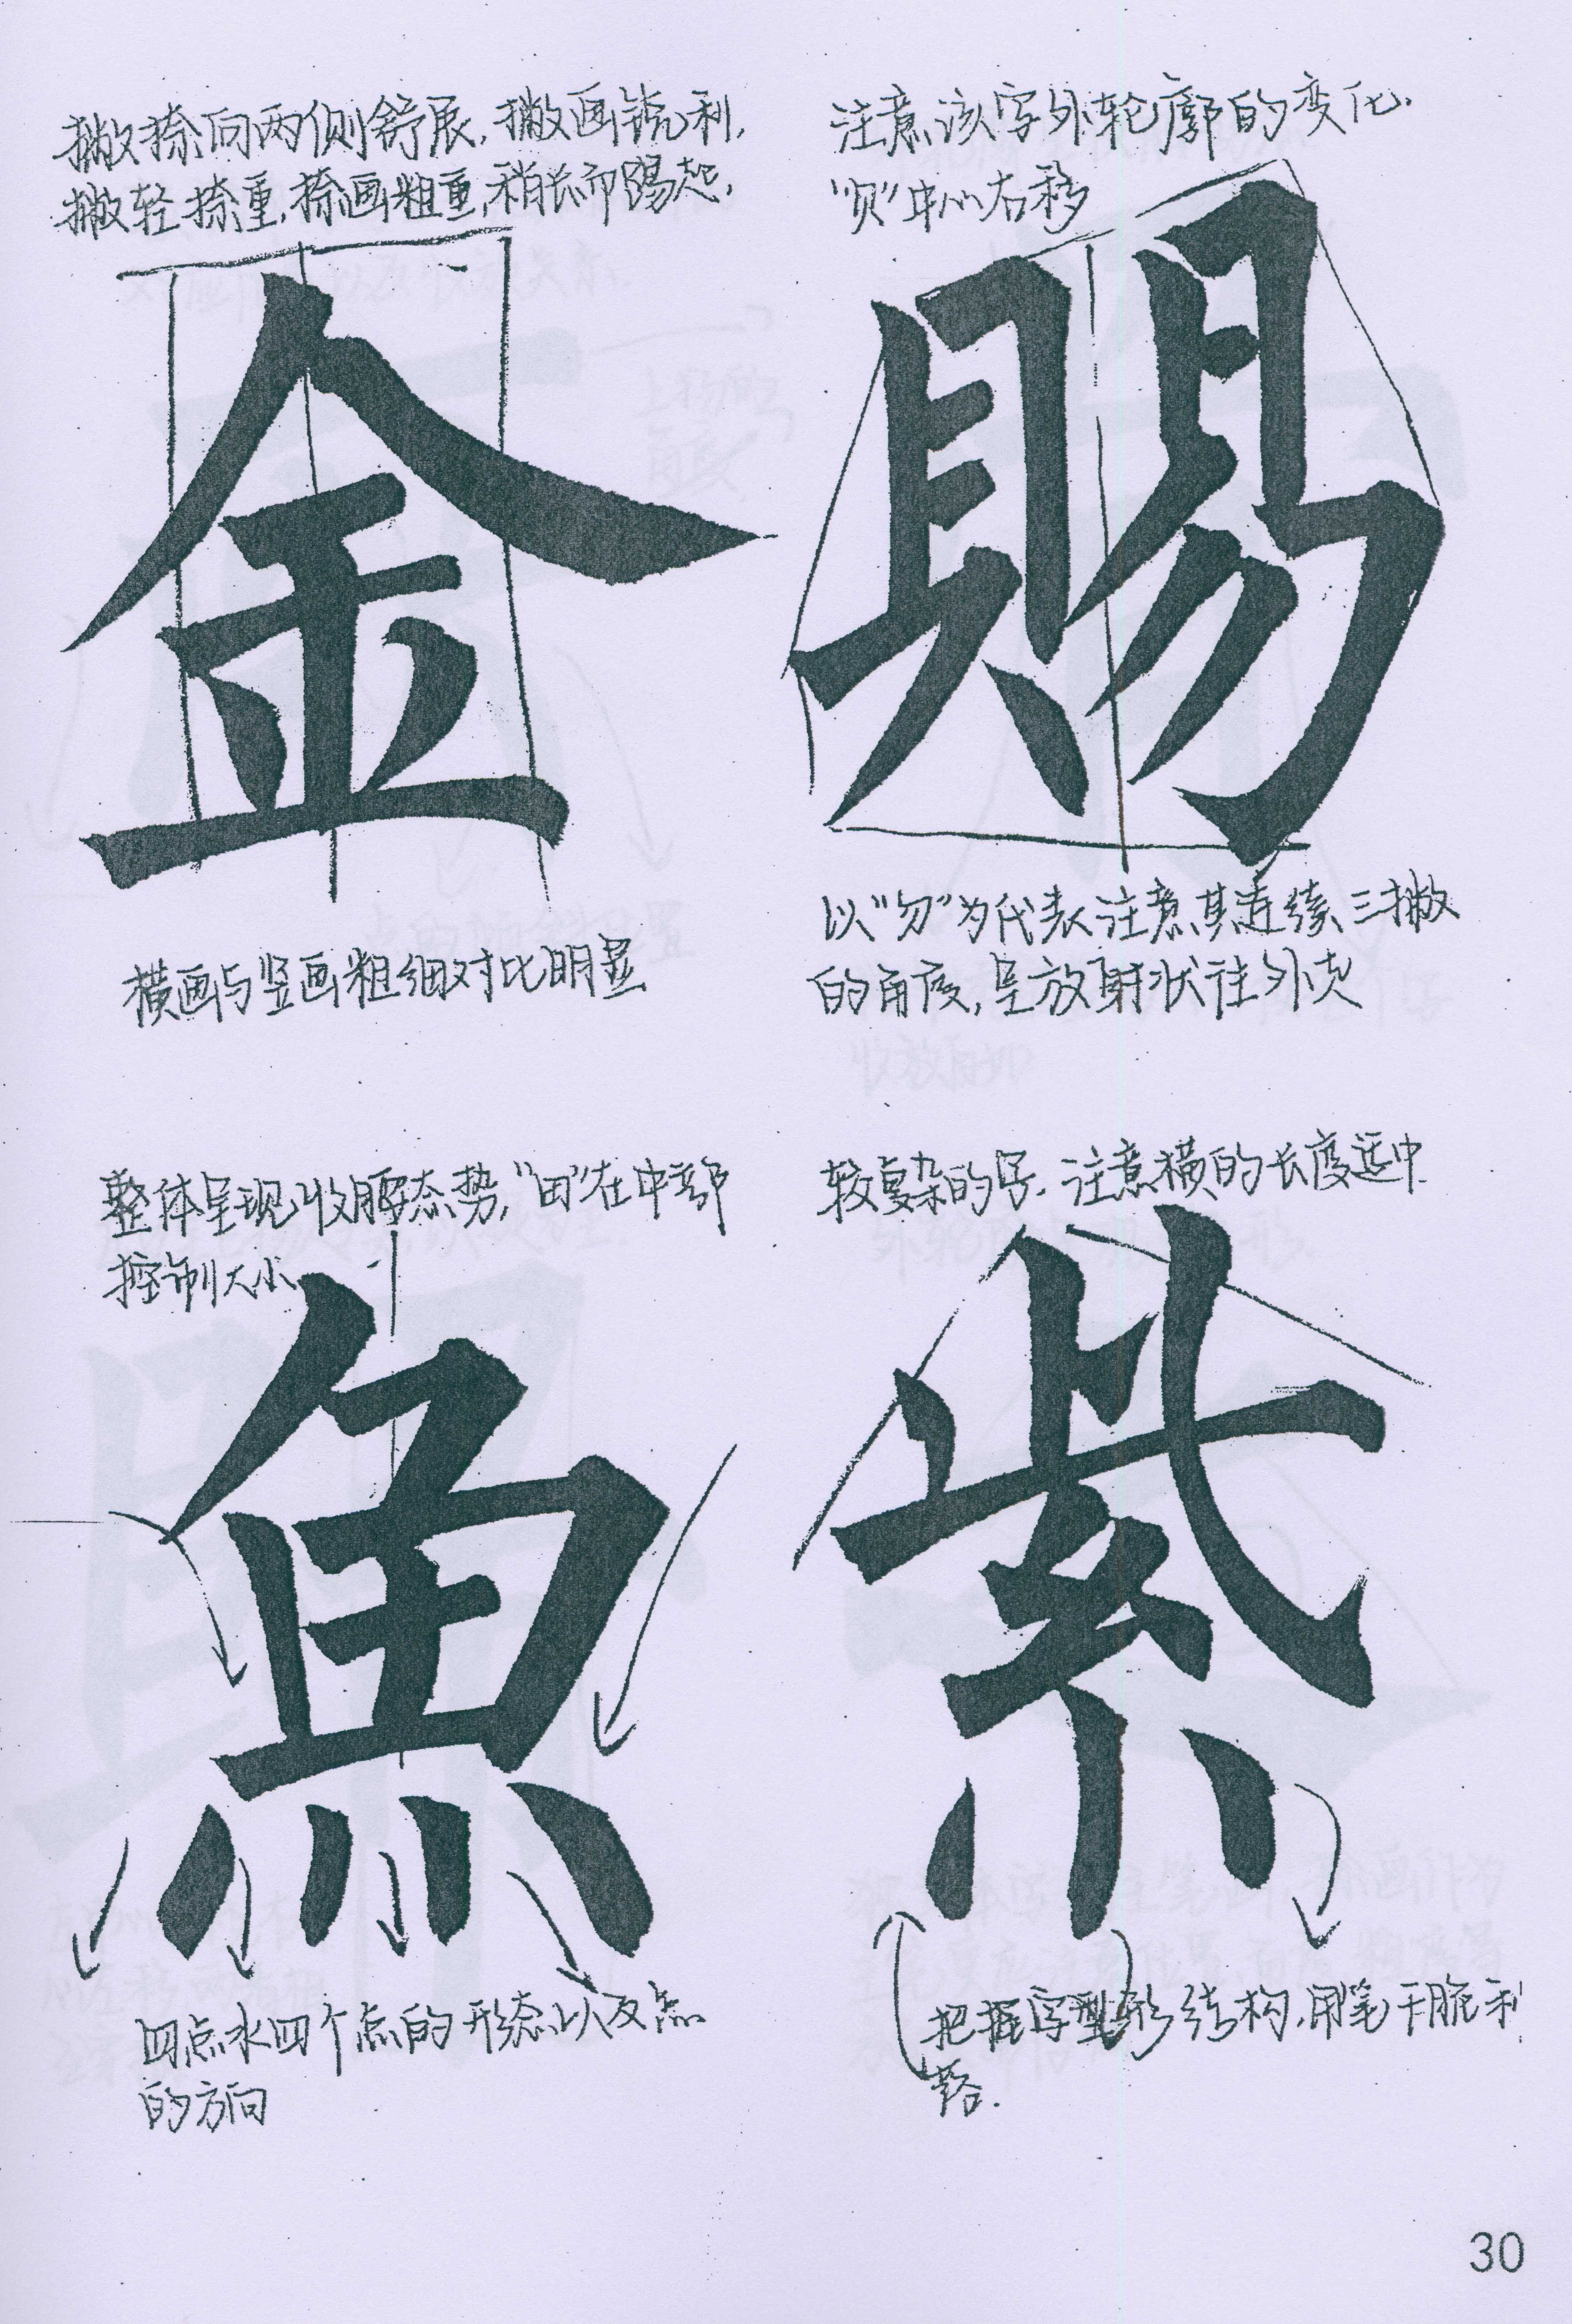 撇捺向两侧舒展，撇画锐利，
撇轻捺重，捺画粗重，稍长而踢起，
金
横画与竖画粗细对比明显
注意该字外轮廓的变化.
"贝"中心右移
賜
以"勿"为代表注意其连续三撇
的角度，呈放射状往外走
整体呈现收腰态势，"田"在中部
控制大小
魚
四点水四个点的形态以及点
的方向
较复杂的字.注意横的长度适中.
紫
把握字型结构，用笔干脆利
落.
30